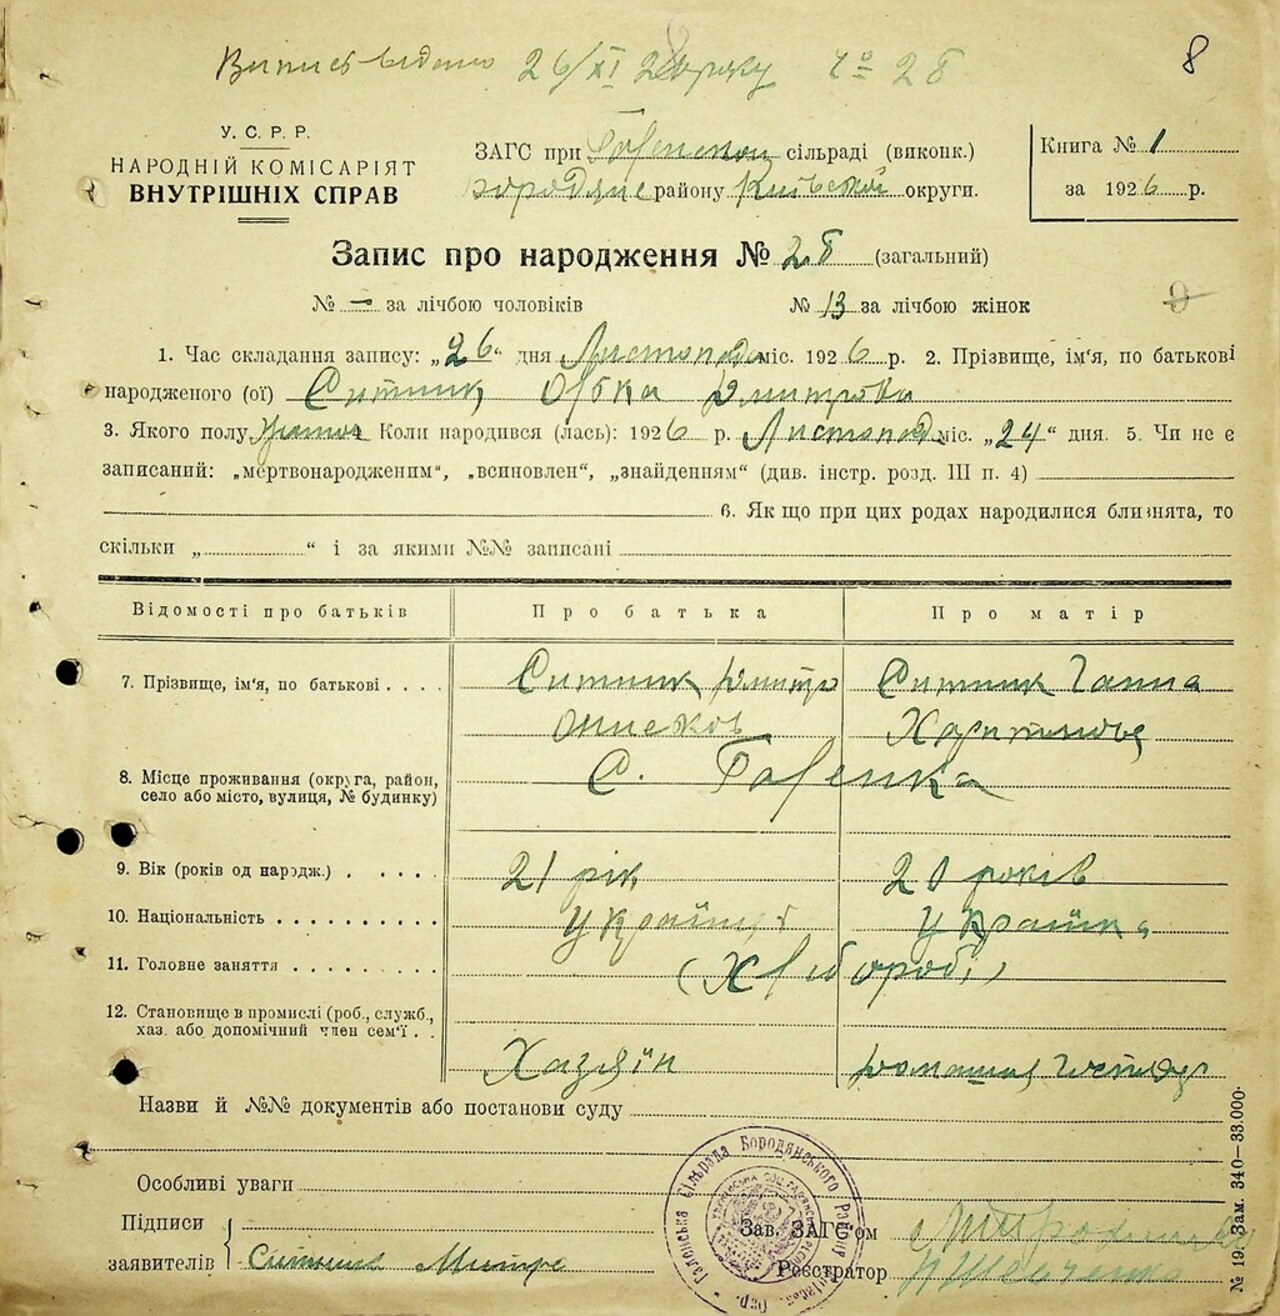 Випись видано 26/XI 26 року № 25
8
У. С. Р. Р.
НАРОДНІЙ КОМІСАРІЯТ
ВНУТРІШНІХ СПРАВ
ЗАГС при сільраді (виконк.)
району Київської округи.
Книга № 1
за 1926 р.
Запис про народження № 25 (загальний)
№ — за лічбою чоловіків № 13 за лічбою жінок
1. Час складання запису: „26“ дня Листопада міс. 1926 р. 2. Прізвище, ім'я, по батькові
народженого (ої) Ситник, Олька Дмитрова
3. Якого полу Коли народився (лась): 1926 р. Листопад міс. „24“ дня. 5. Чи не є
записаний: „мертвонародженим“, „всиновлен“, „знайденням“ (див. інстр. розд. III п. 4)
6. Як що при цих родах народилися близнята, то
скільки „ “ і за якими №№ записані
Відомості про батьків Про батька Про матір
7. Прізвище, ім'я, по батькові . . . . Ситник Дмитро Ситник Ганна
Харитонова
8. Місце проживання (округа, район, С. Галенка
село або місто, вулиця, № будинку)
9. Вік (років од народж.) . . . . . 21 рік 20 років
10. Національність . . . . . . . . . . Українець Українка
11. Головне заняття . . . . . . . . . (Хлібороб)
12. Становище в промислі (роб., служб.,
хаз. або допомічний член сем'ї . .
Хазяїн Домашня
Назви й №№ документів або постанови суду
Особливі уваги
Підписи
заявителів Ситник Митро
Зав. ЗАГС'ом
Реєстратор Шевченко
Галенська Сільрада Бородянського Району Київ. Окр.
№ 19. Зам. 340—33.000.